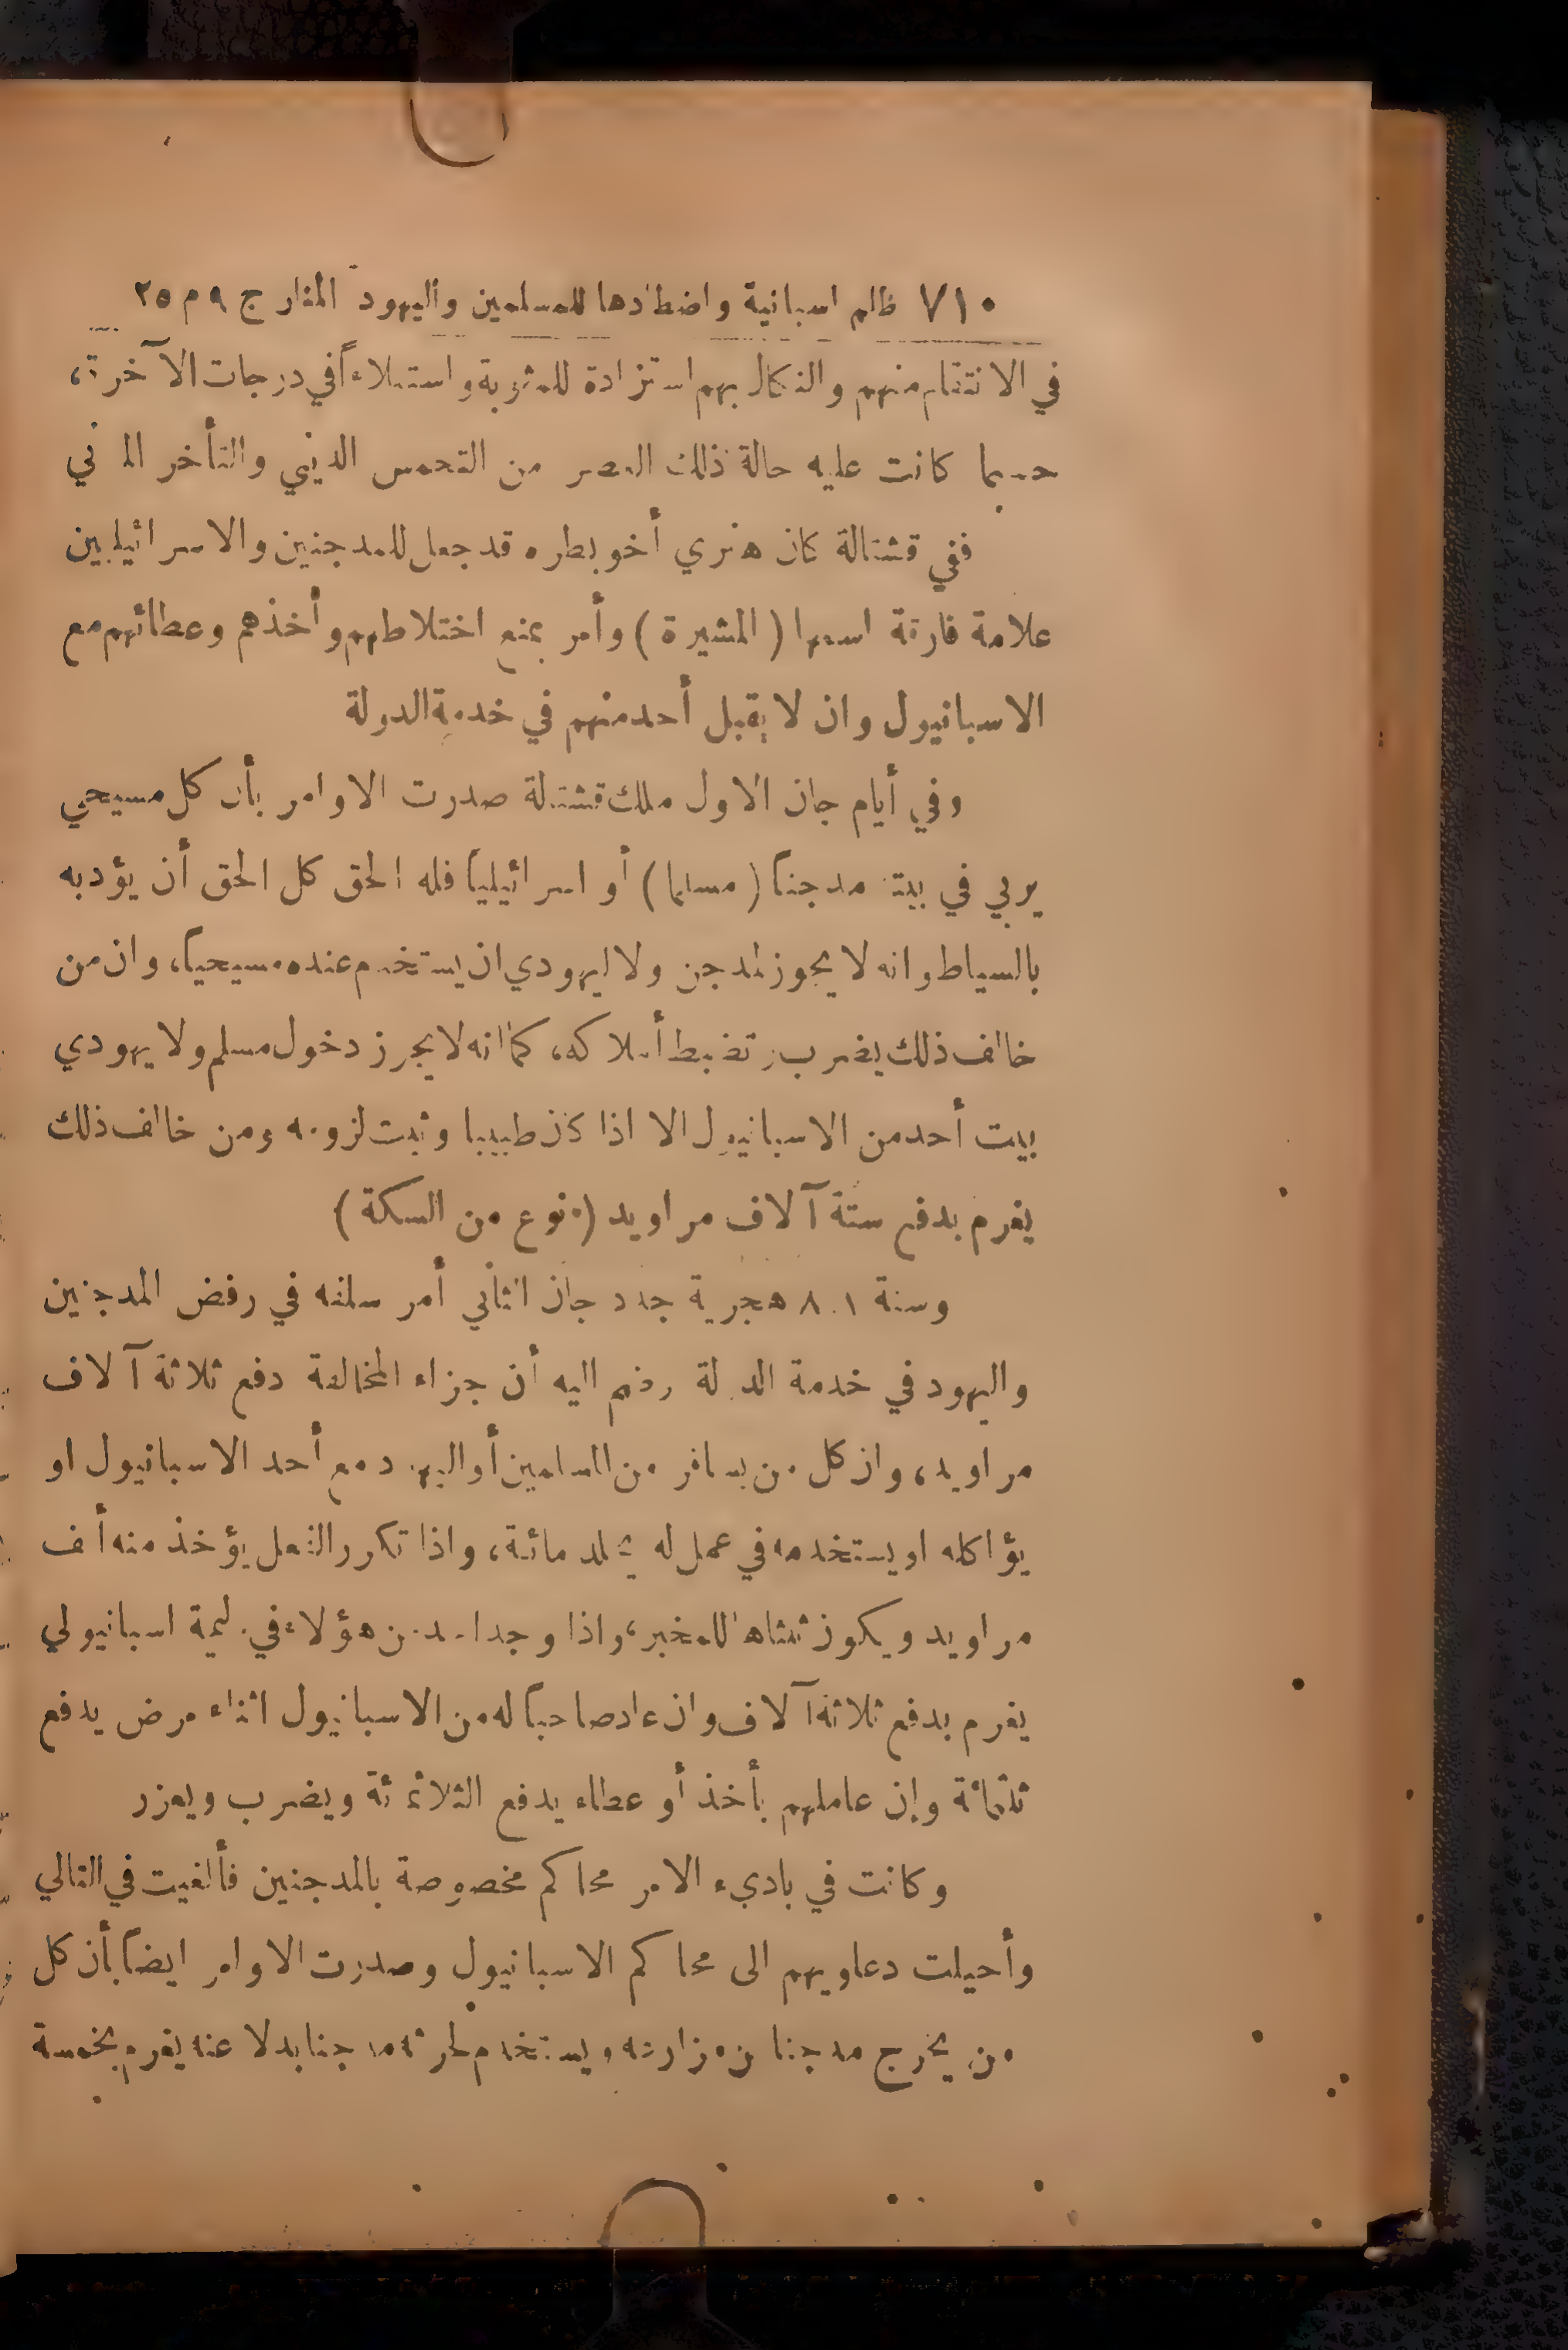 ٧١٠ ظلم اسبانية واضطهادها للمسلمين واليهود المنار ج ٩ م ٢٥
في الانتقام منهم والنكال بهم استزادة للمثوبة واستعلاءاً في درجات الآخرة،
حسبما كانت عليه حالة ذلك العصر من التحمس الديني والتأخر المدني
ففي قشتالة كان هنري أخو بطره قد جعل للمدجنين والاسرائيليين
علامة فارقة اسمها (المشيرة) وأمر بمنع اختلاطهم وأخذهم وعطائهم مع
الاسبانيول وان لا يقبل أحد منهم في خدمة الدولة
وفي أيام جان الاول ملك قشتالة صدرت الاوامر بأن كل مسيحي
يربي في بيته مدجناً (مسلما) أو اسرائيلياً فله الحق كل الحق أن يؤدبه
بالسياط وانه لا يجوز لمدجن ولا ليهودي ان يستخدم عنده مسيحياً، وان من
خالف ذلك يضرب وتضبط أملاكه، كما انه لا يجوز دخول مسلم ولا يهودي
بيت أحد من الاسبانيول الا اذا كان طبيبا وثبت لزومه ومن خالف ذلك
يغرم بدفع ستة آلاف مراويد (نوع من السكة)
وسنة ٨٠١ هجرية جدد جان الثاني أمر سلفه في رفض المدجنين
واليهود في خدمة الدولة وضم اليه أن جزاء المخالفة دفع ثلاثة آلاف
مراويد، وان كل من يسافر من المسلمين أو اليهود مع أحد الاسبانيول او
يؤاكله او يستخدمه في عمل له يجلد مائة، واذا تكرر الفعل يؤخذ منه ألف
مراويد ويكون ثلثاها للمخبر، واذا وجد احد من هؤلاء في وليمة اسبانيولي
يغرم بدفع ثلاثة آلاف وان عاد صاحباً له من الاسبانيول اثناء مرض يدفع
ثلثمائة وإن عاملهم بأخذ أو عطاء يدفع الثلاثمائة ويضرب ويعزر
وكانت في باديء الامر محاكم مخصوصة بالمدجنين فألغيت في التالي
وأحيلت دعاويهم الى محاكم الاسبانيول وصدرت الاوامر ايضاً بأن كل
من يخرج مدجنا من مزارعته ويستخدم لحرثه مدجنا بدلا عنه يغرم بخمسة